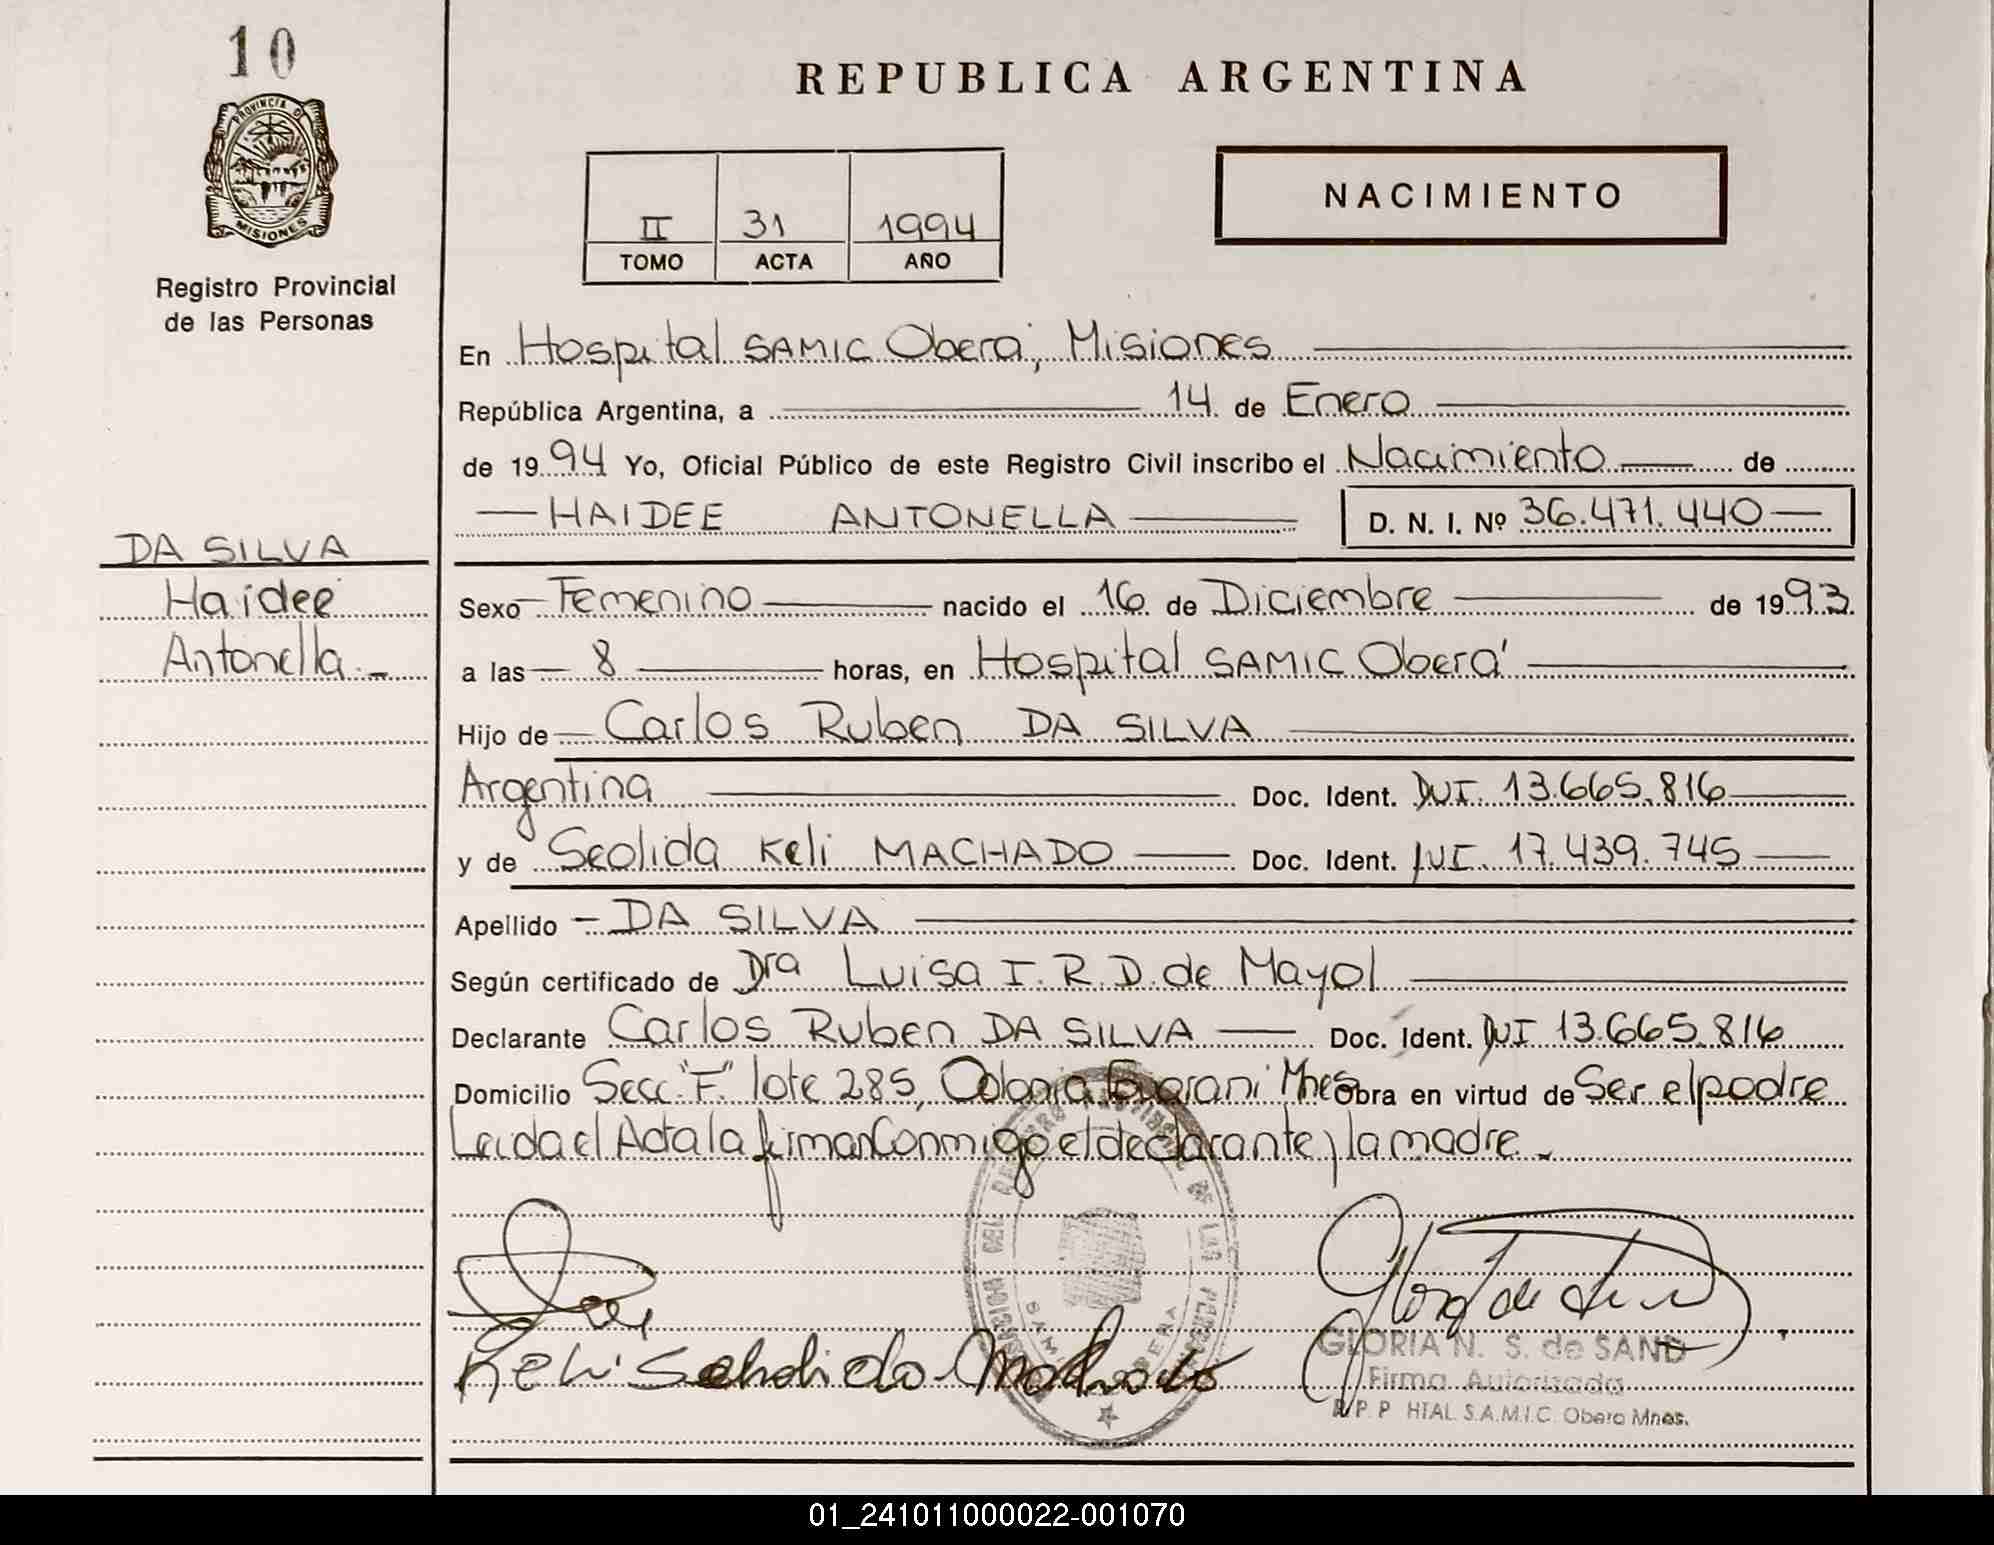 10
PROVINCIA D
MISIONES
Registro Provincial
de las Personas
DA SILVA
Haideé
Antonella.-
REPUBLICA ARGENTINA
II 31 1994
TOMO ACTA AÑO
NACIMIENTO
En Hospital SAMIC Oberá, Misiones
República Argentina, a 14 de Enero
de 1994 Yo, Oficial Público de este Registro Civil inscribo el Nacimiento de
HAIDEE ANTONELLA D. N. I. Nº 36.471.440
Sexo Femenino nacido el 16 de Diciembre de 1993.
a las 8 horas, en Hospital SAMIC Oberá
Hijo de Carlos Ruben DA SILVA
Argentina Doc. Ident. DNI. 13.665.816
y de Seolida Keli MACHADO Doc. Ident. DNI. 17.439.745
Apellido DA SILVA
Según certificado de Dra Luisa I. R. D. de Mayol
Declarante Carlos Ruben DA SILVA Doc. Ident. DNI 13.665.816
Domicilio Secc. "F" lote 285, Colonia Guarani Mnes Obra en virtud de Ser el padre
Leida el Acta la firman Conmigo el declarante y la madre.-
Keli Seholida Machado
GLORIA N. S. de SAND
Firma Autorizada
R.P.P HTAL S.A.M.I.C. Obera Mnes.
01_241011000022-001070